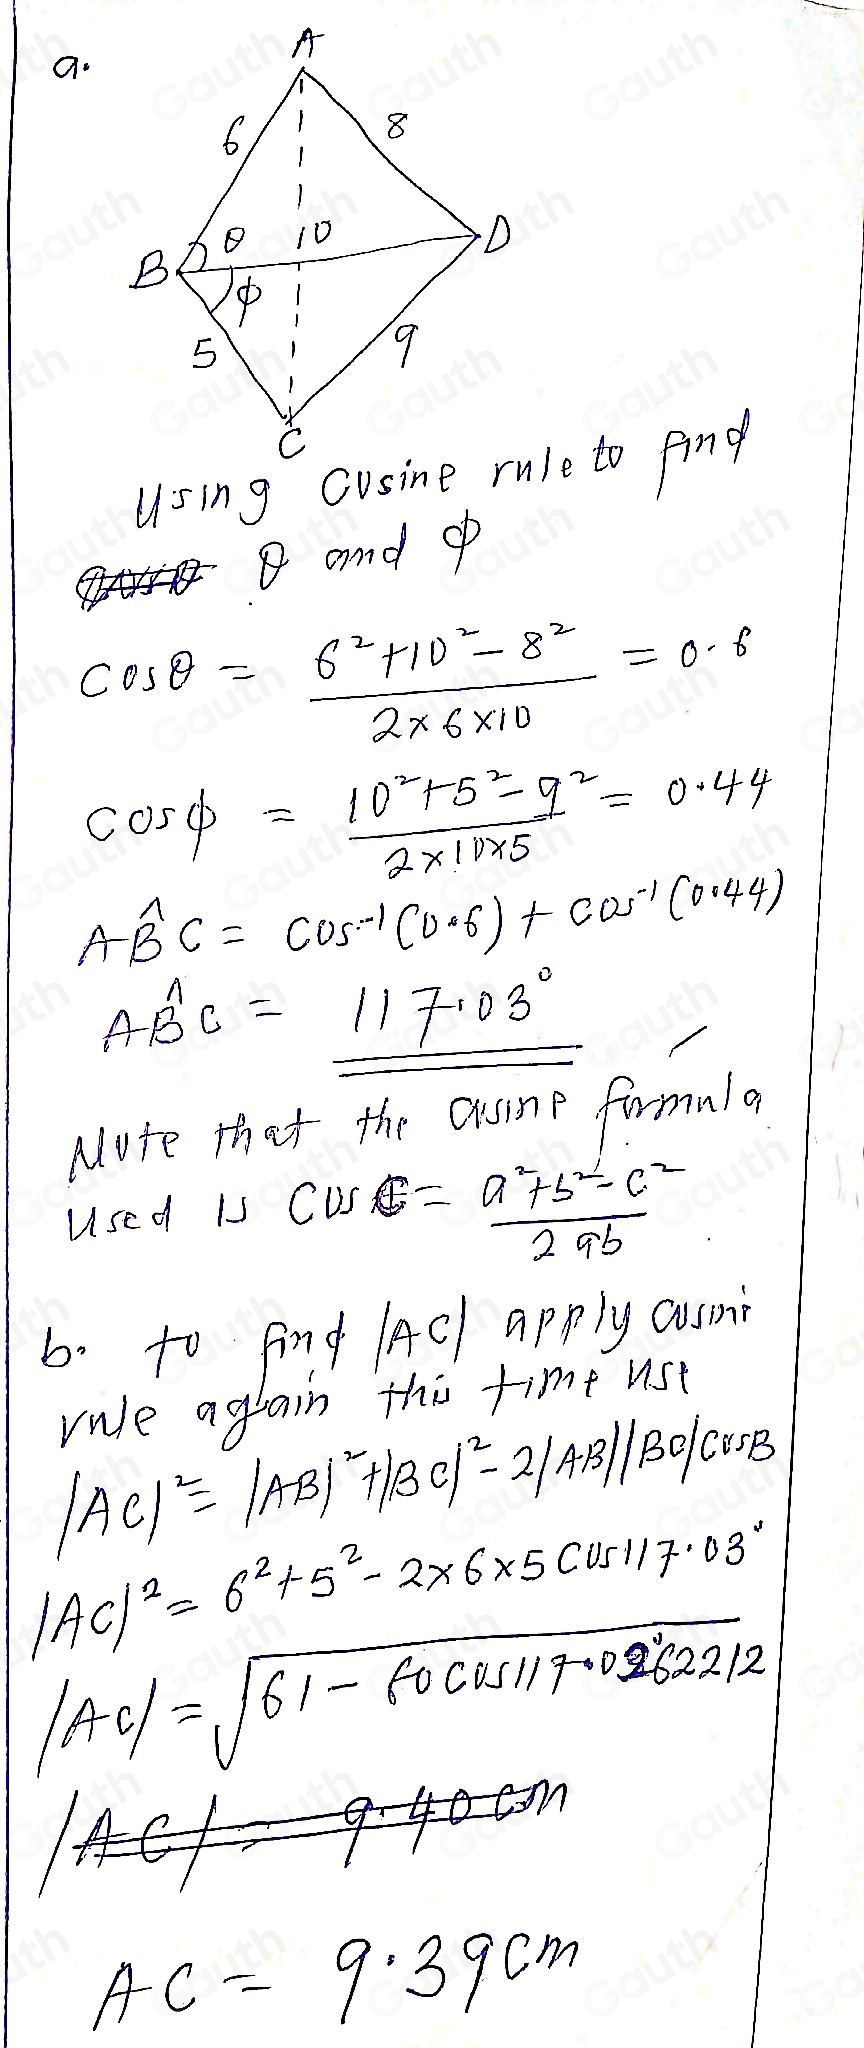 a.
A
6
8
B
θ
10
D
ϕ
5
9
C
Using cosine rule to find
θ and ϕ
cosθ = (6²+10²-8²)/(2×6×10) = 0.6
cosϕ = (10²+5²-9²)/(2×10×5) = 0.44
AB̂C = cos⁻¹(0.6) + cos⁻¹(0.44)
AB̂C = 117.03°
Note that the cosine formula
used is cos C = (a²+b²-c²)/(2ab)
b. to find |AC| apply cosine
rule again this time use
|AC|² = |AB|²+|BC|²-2|AB||BC|cosB
|AC|² = 6²+5²-2×6×5cos117.03°
|AC| = √(61-60cos117.0262212)
|AC| = 9.40cm
AC = 9.39cm
Gauth